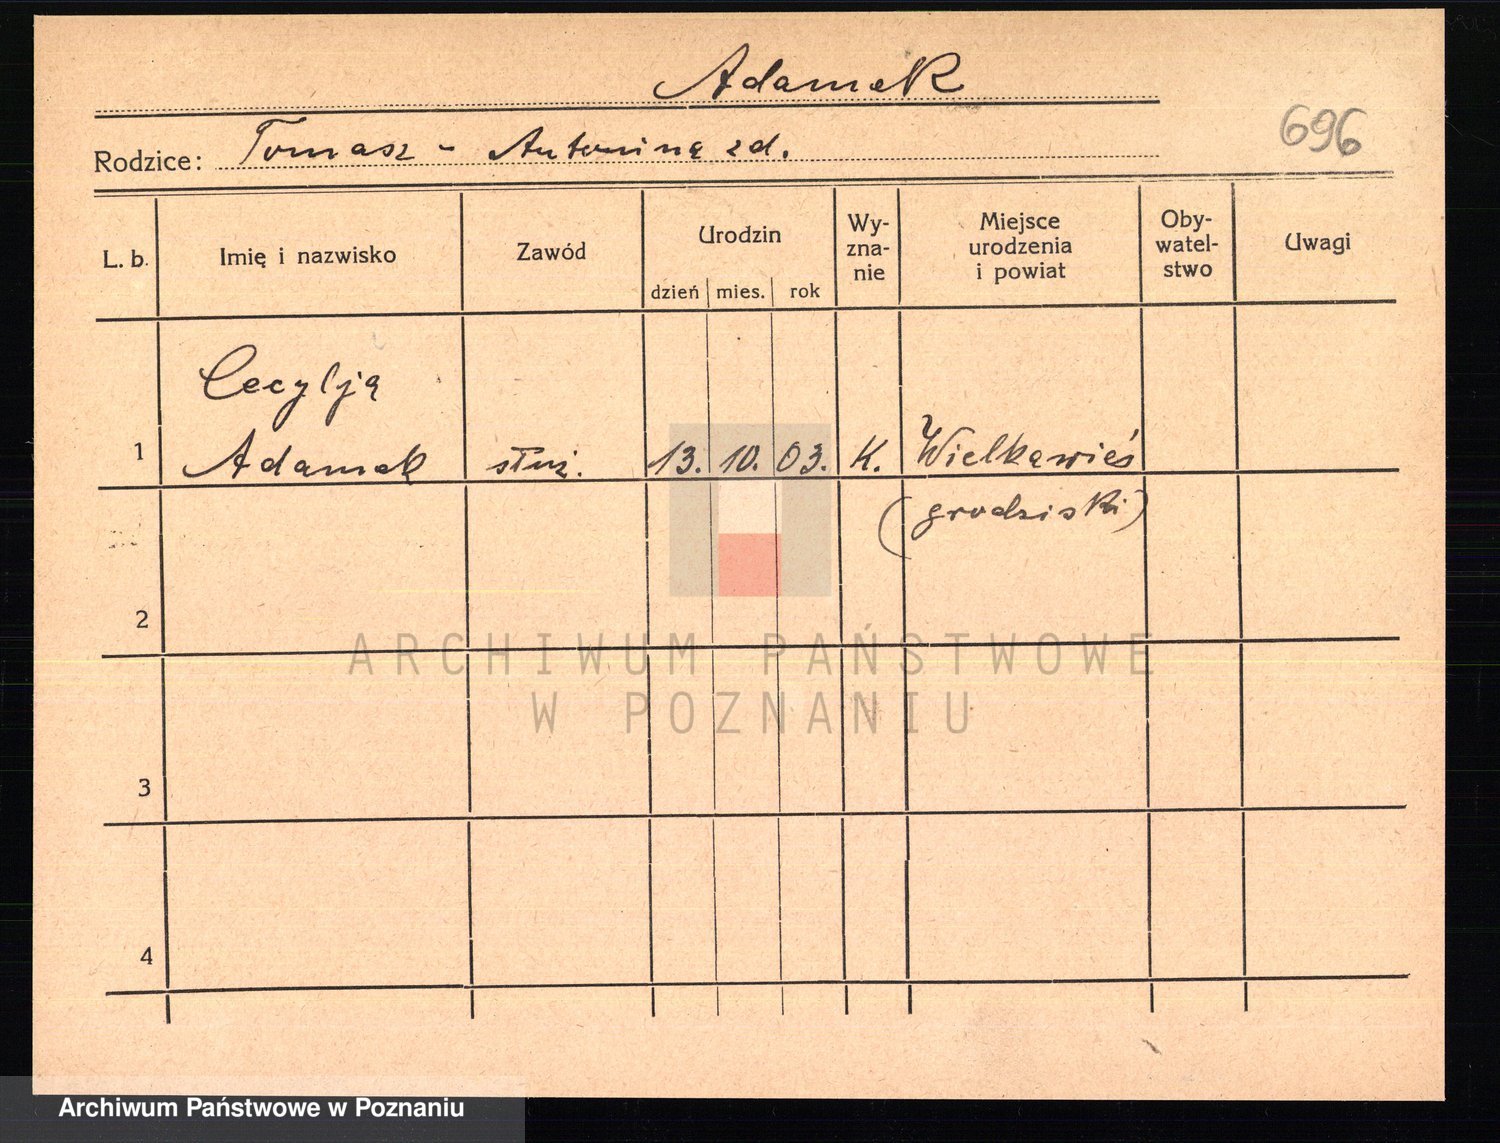 Adamek
696
Rodzice: Tomasz - Antonina zd.
L. b.
Imię i nazwisko
Zawód
Urodzin
dzień mies. rok
Wy-
zna-
nie
Miejsce
urodzenia
i powiat
Oby-
watel-
stwo
Uwagi
Cecylja
1 Adamek służ. 13. 10. 03. K. Wielkawieś
(grodziski)
2
ARCHIWUM PAŃSTWOWE
W POZNANIU
3
4
Archiwum Państwowe w Poznaniu